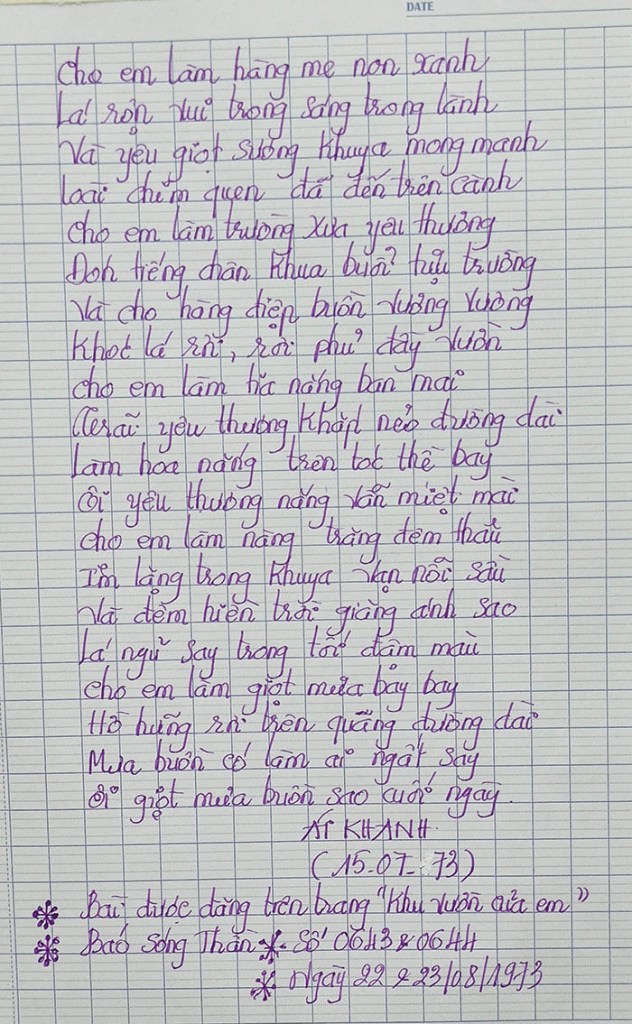 DATE
Cho em làm hàng me non xanh
Lá rộn vui trong sáng trong lành
Và yêu giọt sương khuya mong manh
Loài chim quen đã đến trên cành
Cho em làm trường xưa yêu thương
Đón tiếng chân khua buổi tựu trường
Và cho hàng điệp buồn vương vương
Khóc lá rơi, rơi phủ đầy vườn
Cho em làm tia nắng ban mai
Trải yêu thương khắp nẻo đường dài
Làm hoa nắng trên tóc thề bay
Ôi yêu thương nắng vẫn miệt mài
Cho em làm nàng trăng đêm thâu
Im lặng trong khuya vạn nỗi sầu
Và đêm hiền trời giăng ánh sao
Lá ngủ say trong tối đậm màu
Cho em làm giọt mưa bay bay
Hờ hững rơi trên quãng đường dài
Mưa buồn có làm ai ngất say
Ôi giọt mưa buồn sao cuối ngày.
ÁI KHANH.
(15-07-73)
* Bài được đăng trên trang "Khu vườn của em"
* Báo Sóng Thần *- Số 0643 & 0644
* Ngày 22 & 23/08/1973